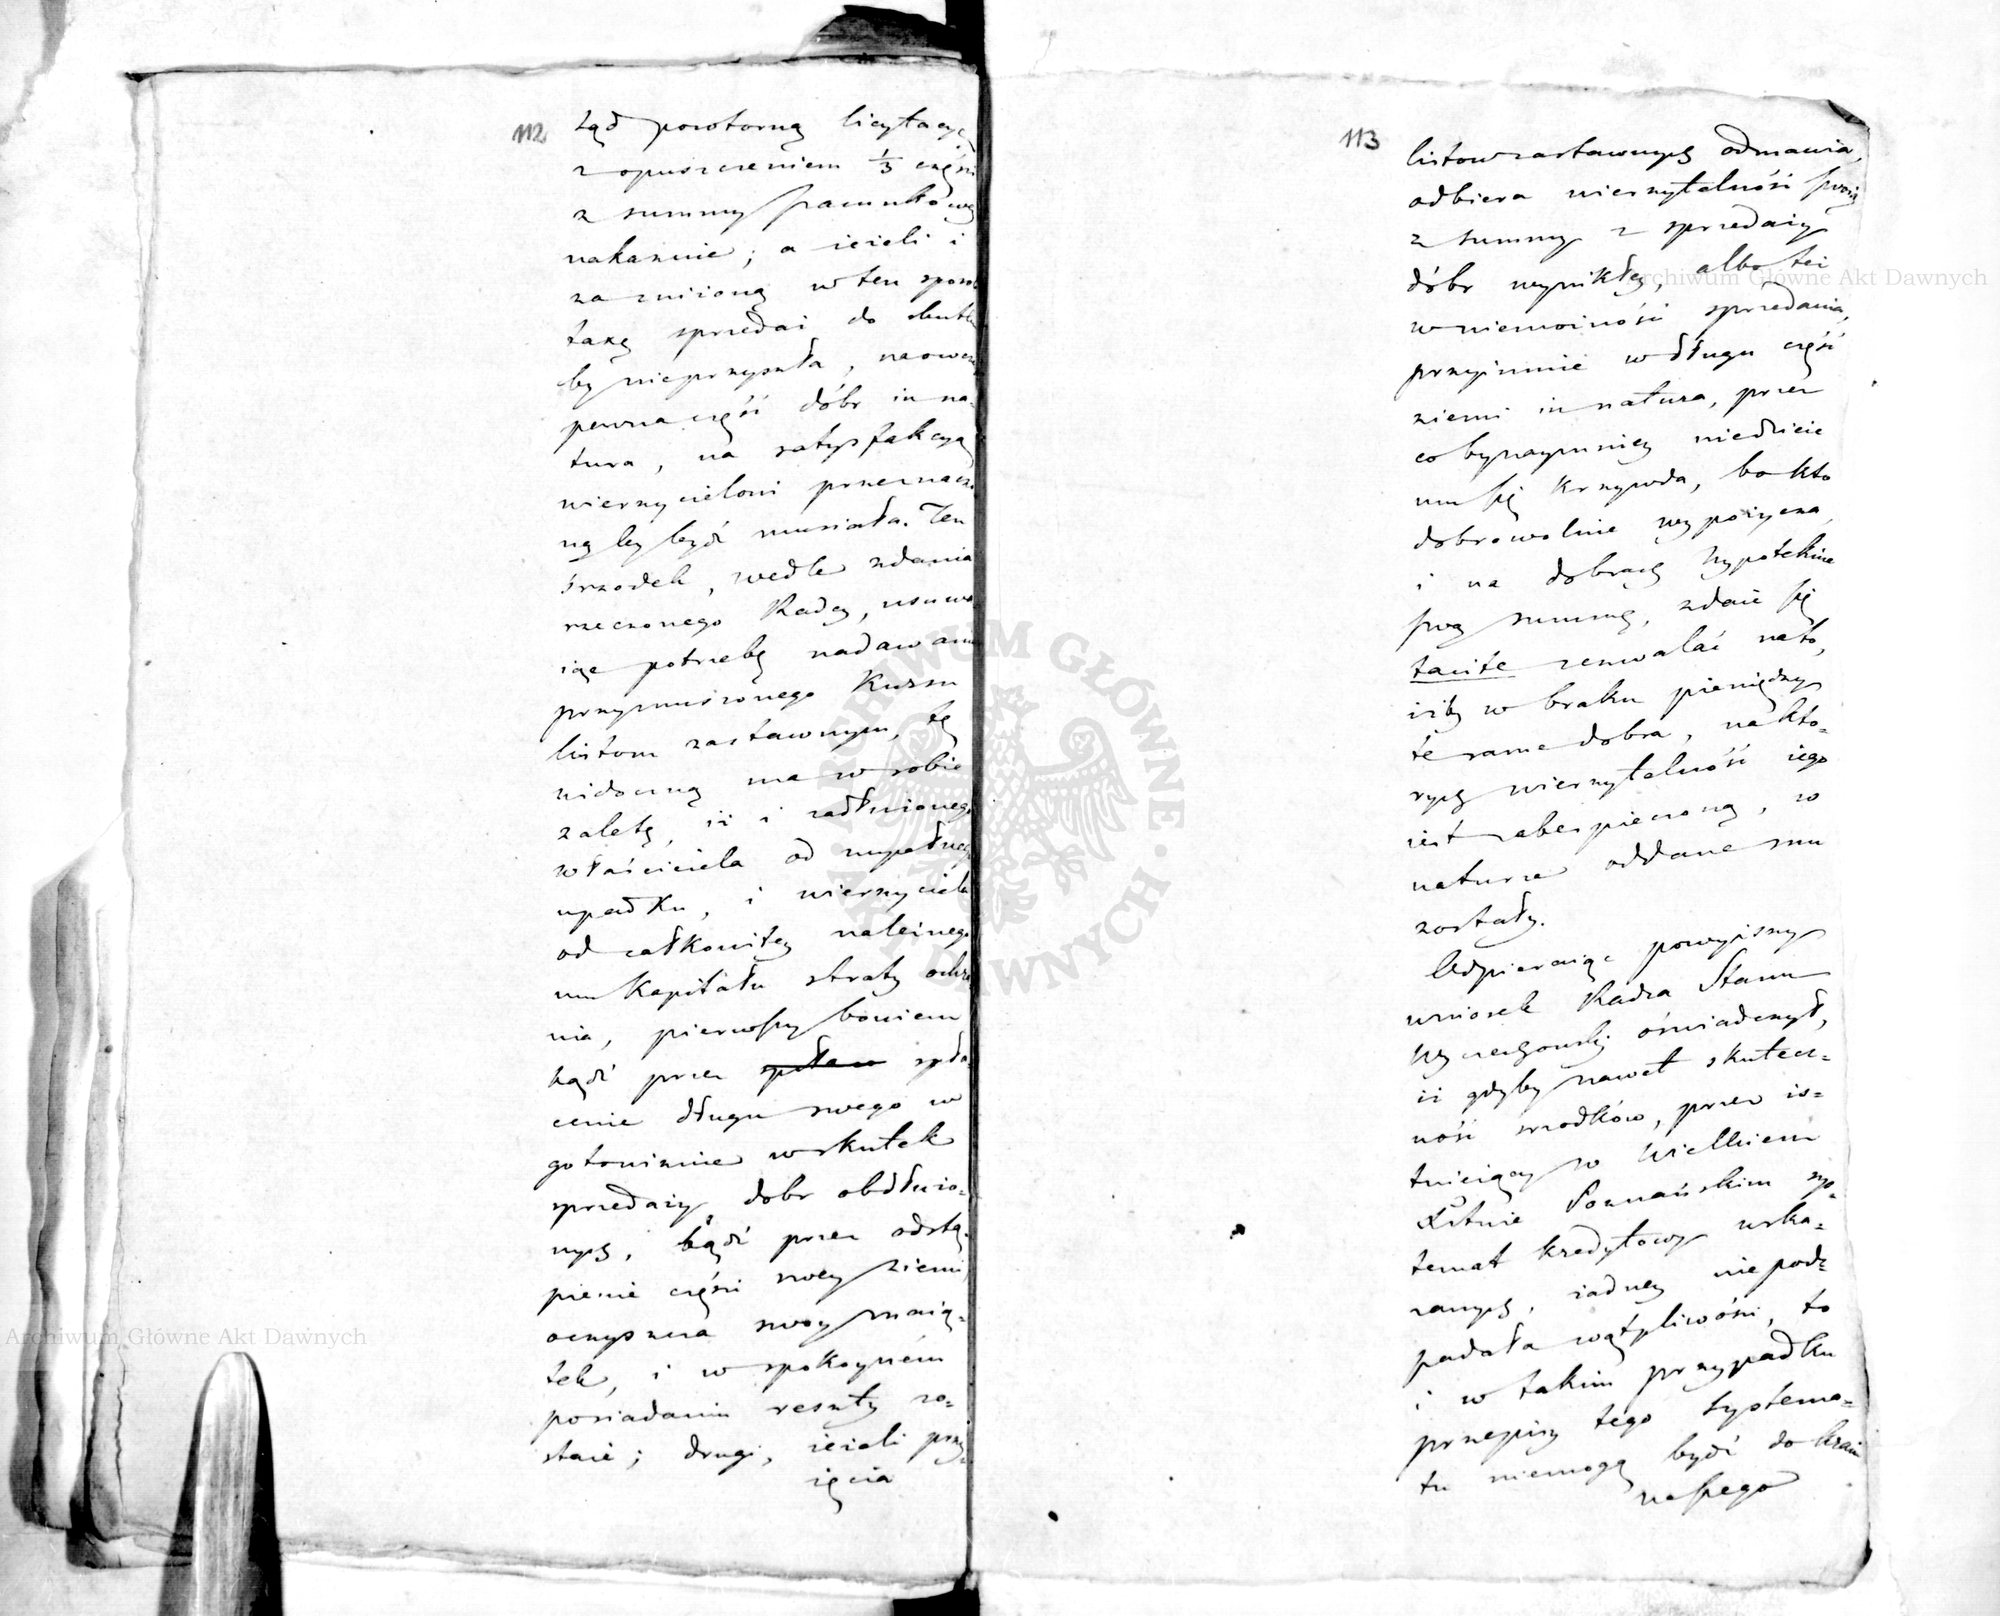 112
Rząd powtorną licytacyę
z opuszczeniem 1/3 części
z summy szacunkowey
nakazuie; a ieżeli i
za zniżoną w ten sposob
taxę sprzedaż do skutku
by nieprzyszła, naowczas
pewna część dóbr in na=
tura, na satysfakcyą
wierzycielowi przeznaczo
ną by bydź musiała. Ten
śrzodek, wedle zdania
rzeczonego Radcy, usuwa
iąc potrzebę nadawania
przymuszonego Kursu
listom zastawnym, tę
widoczną ma w sobie
zaletę, iż i zadłużonego
właściciela od zupełnego
upadku, i wierzyciela
od całkowitey należnego
mu Kapitału straty ochra
nia, pierwszy bowiem
bądź przez spła=
cenie długu swego w
gotowiznie w skutek
sprzedaży dobr obdłużo=
nych, bądź przez odstą=
pienie części swey ziemi
oczyszcza swoy maią=
tek, i w spokoynem
posiadaniu reszty zo=
staie; drugi, ieżeli przy=
ięcia
113
listow zastawnych odmawia,
odbiera wierzytelność swoią
z summy z sprzedaży
dóbr wynikłey, albo też
w niemożności sprzedania,
przyimuie w długu część
ziemi in natura, przez
co bynaymniey niedzieie
mu się krzywda, bo kto
dobrowolnie wypożycza
i na dobrach hypotekuie
swą summę, zdaie się
tacite zezwalać na to,
iżby w braku pieniędzy
te same dobra, na kto=
rych wierzytelność iego
iest zabezpieczoną, w
naturze oddane mu
zostały.
Odpieraiąc powyższy
wniosek Radca Stanu
Wyczechowski oświadczył,
iż gdyby nawet skutecz=
ność srzodków, przez is=
tnieiący w Wielkiem
Xstwie Poznańskim sys=
temat kredytowy wska=
zanych, żadney niepod=
padała wątpliwości, to
i w takim przypadku
przepisy tego systema=
tu niemogą bydź do kraiu
naszego
Archiwum Główne Akt Dawnych
Archiwum Główne Akt Dawnych
ARCHIWUM GŁÓWNE AKT DAWNYCH